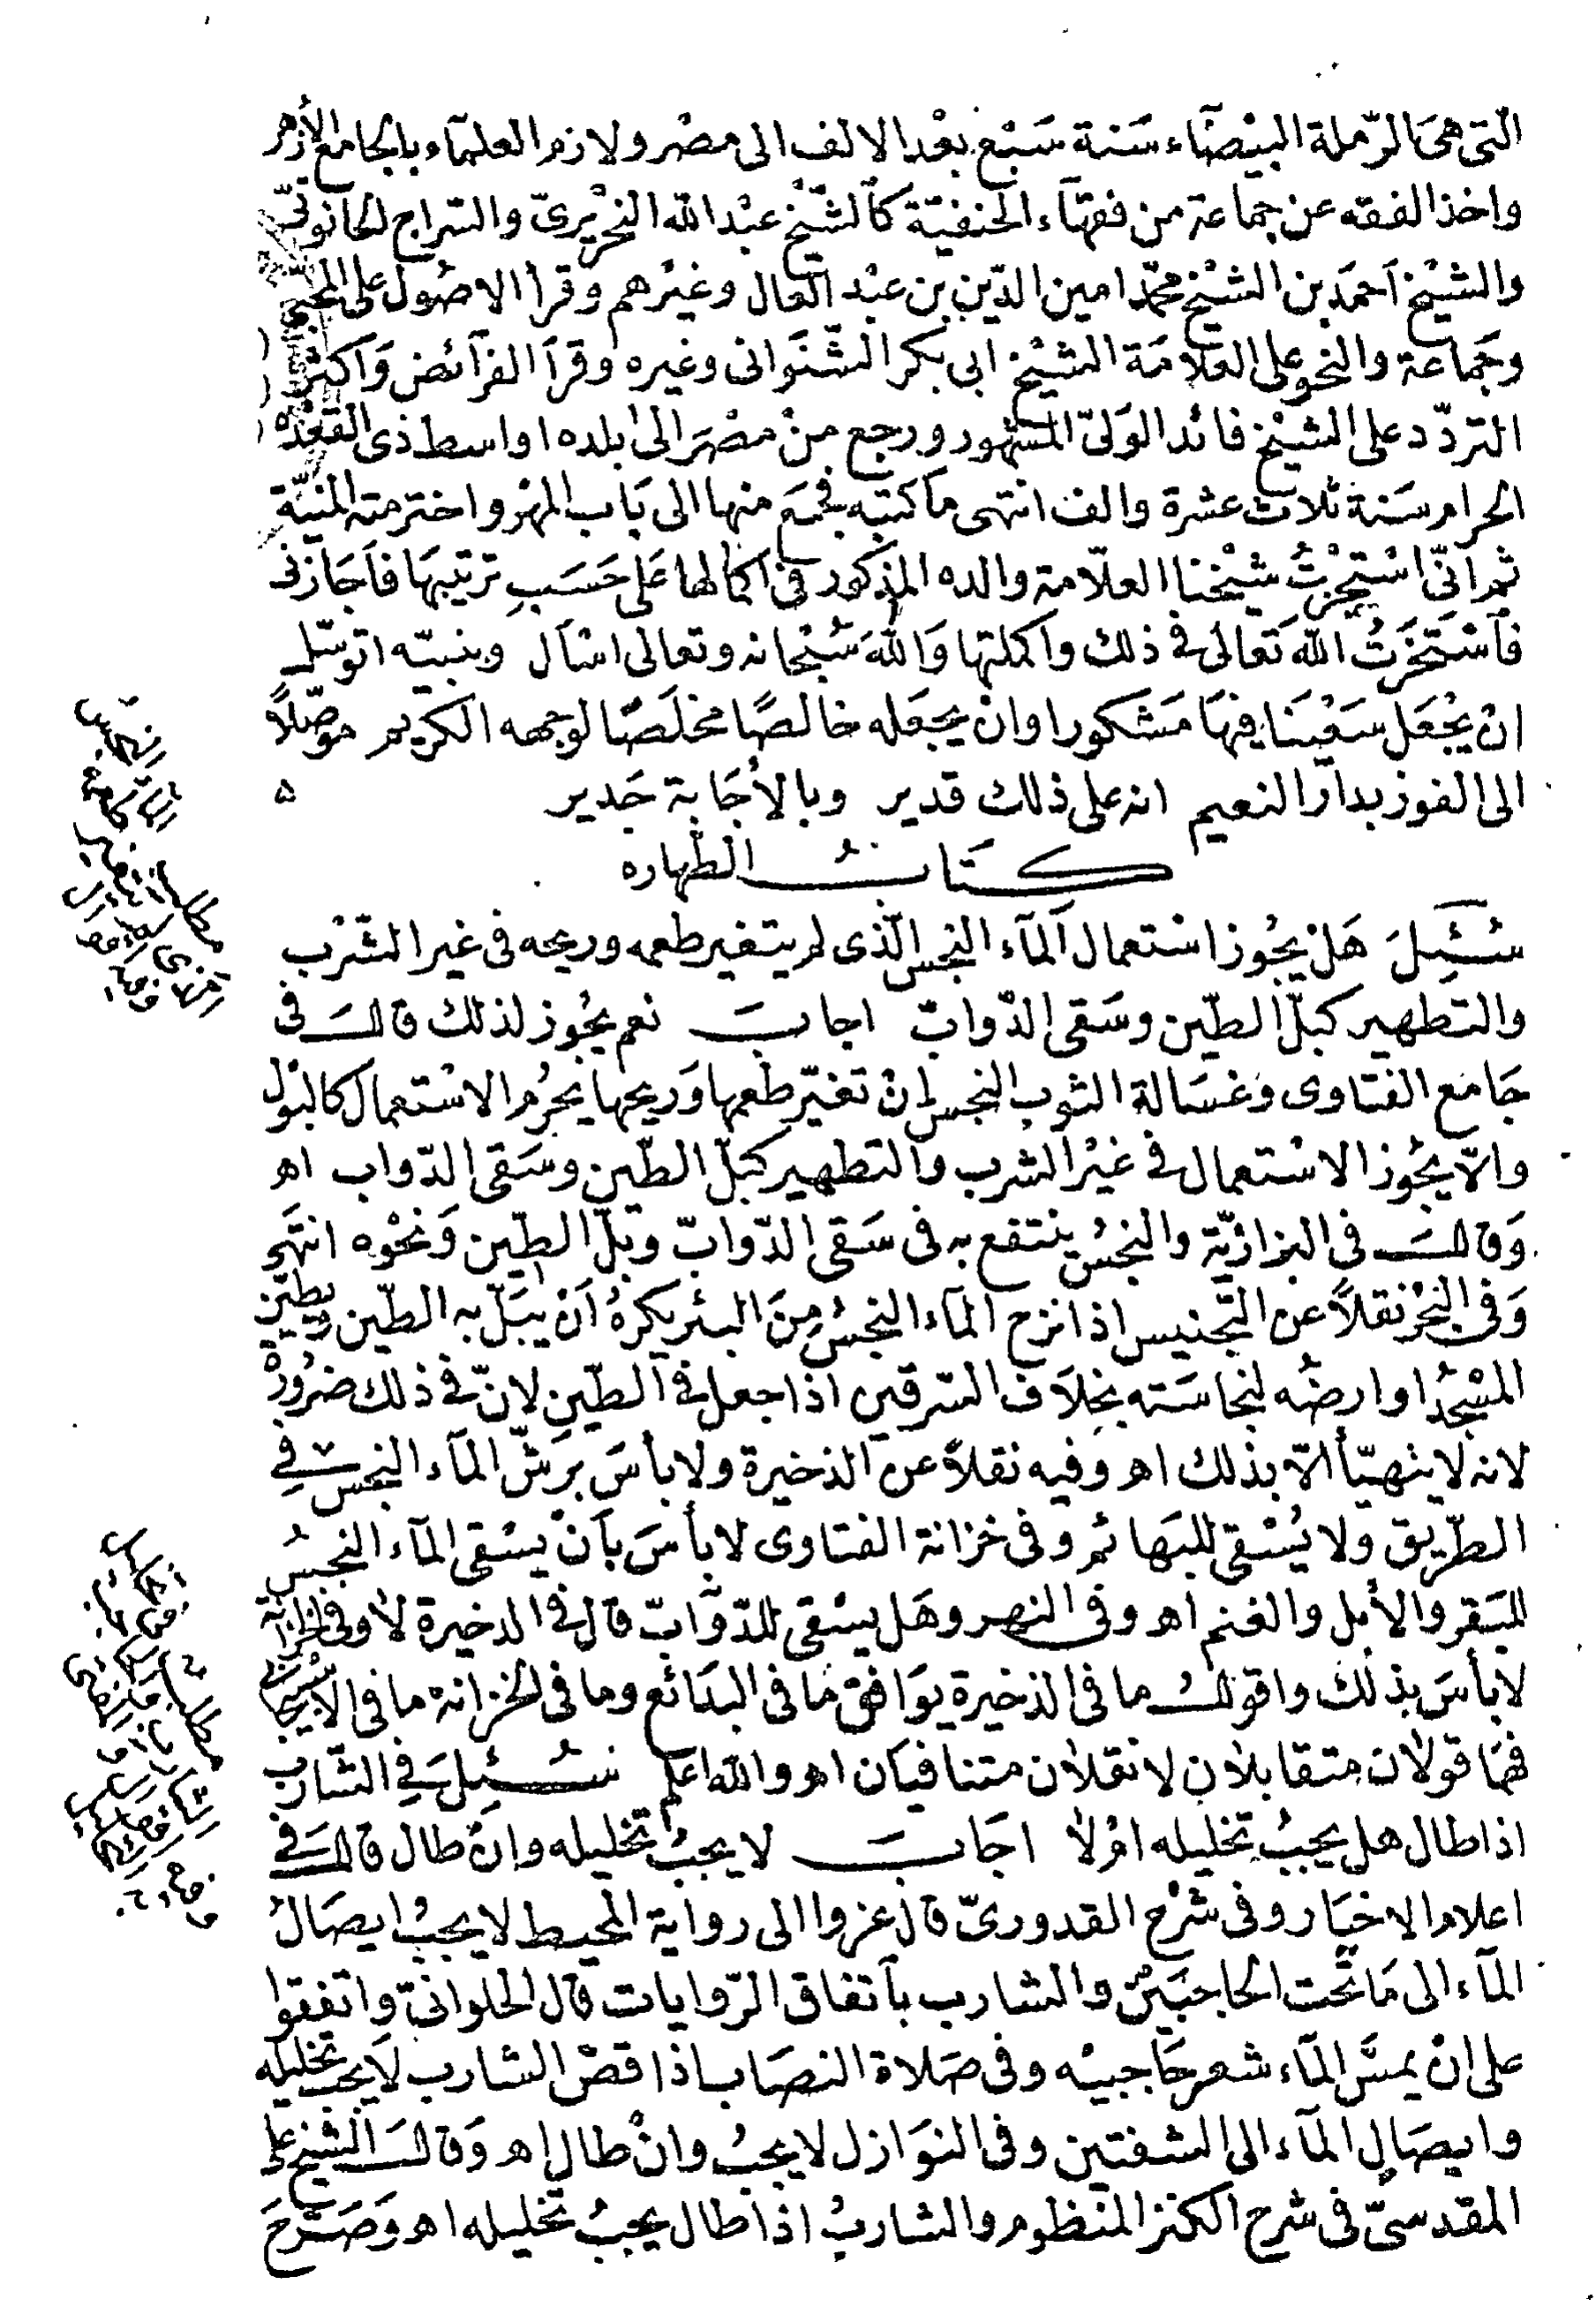 التى هى الرّملة البيْضَاء سَنة سَبْع بعْد الالف الى مصْر ولازم العلمآء بالجامع الأزهر
واخذ الفقه عن جماعة من فقهآء الحنفيّة كالشّيْخ عبْد الله النحْريرىّ والسّراج الحانوتىّ
والشّيْخ اَحمَد بن الشيْخ محمّد امين الدّين بن عبْد العال وغيْرهم وقرأ الاصُول على المحبىّ
وجَماعة والنحو على العلامَة الشيْخ ابى بكر الشّنَوانى وغيره وقرأ الفرآئض وَاكثر
التردّد على الشيْخ فائد الوَلىّ المشهور ورجع منْ مصْرَ الى بلده اواسط ذى القعْده
الحرام سَنة ثلاث عشرة والف انتهى ما كتبه فجمَع منها الى بَاب المهْر واخترمته المنيّة
ثم انّى اسْتجزْتُ شيْخنا العلّامة والده المذكور فى اكمالها عَلى حَسَبِ ترتيبهَا فاَجَازنى
فاَسْتخَرْتُ الله تعَالى فى ذلك واكملتها وَاللهَ سُبْحانه وتعالى اسْأل وبنبيّه اتوسّل
انْ يجْعَل سَعْينَا فيهَا مَشكورا وانْ يجعَله خالصًا مخلَصًا لوجهه الكريم موصّلاً
الى الفوز بدار النعيم انه على ذلك قدير وبالأجَابة جَدير ه
كتَابُ الطّهاره
سُئِلَ هَلْ يجُوز اسْتعمال المآء النجس الّذى لم يتغير طعمه وريحه فى غير الشّرْب
والتطهير كبلّ الطّين وسَقى الدّوابّ اجابَ نعم يجُوز لذلك قالَ فى
جَامع الفتاوى وغسَالة الثوب النجس انْ تغيّر طعمها وَريحها يحرُم الاسْتعمال كالبوْل
والاّ يجُوز الاسْتعمال فى غيْر الشرب والتطهير كبلّ الطّين وسَقى الدّواب اهـ
وَقالَ فى البزازيّة والنجسُ ينتفع به فى سَقى الدّوابّ وبلّ الطّين وَنحْوه انتهى
وَفى البحْر نقلاً عن التّجنيس اذا نزح المآء النجسُ مِنَ البئر يكرهُ اَنْ يبَلّ به الطّين ويطيّن
المسْجدُ او ارضُه لنجاسَته بخِلاَف السّرقين اذا جعل فى الطّين لانّ فى ذلك ضرُورةً
لانه لا يتهيّأ الاّ بذلك اهـ وفيه نقلاً عن الذخيرة ولا بأسَ برَشّ المآء النجس فى
الطّريق ولا يُسْقى للبهائم وفى خزانة الفتاوى لا بأسَ بأنْ يسْقى المآء النجسُ
للبَقر والأبل والغنم اهـ وفى النهر وهَل يسْقى للدّوَابّ قال فى الدخيرة لا وفى الخزانة
لا بأسَ بذلك واقولُ ما فى الذخيرة يوَافق مَا فى البدَائع وما فى الخزانة ما فى الاسْبيجَابى
فهمَا قولان متقابلان لا نقلان متنافيَان اهـ والله اعلم سُئِلَ فى الشّارب
اذا طال هل يجبُ تخليله اوْلا اجَابَ لا يجبُ تخليله وانْ طال قالَ فى
اعلام الاخيَار وفى شرْح القدورىّ قال عزوا الى رواية المحيط لا يجبُ ايصَالُ
المآء الى مَا تحت الحاجبَيْن والشارب باتفاق الرّوايات قال الحلوانىّ واتفقوا
على انْ يمسّ المآء شعر حَاجبيْه وفى صَلاة النصَاب اذا قصّ الشارب لا يجبُ تخليله
وايصَال المآء الى الشفتين وفى النوَازل لا يجبُ وانْ طال اهـ وَقالَ الشيْخ على
المقدسىّ فى شرح الكنز المنظوم والشاربُ اذا طال يجبُ تخليله اهـ وَصَرّحَ